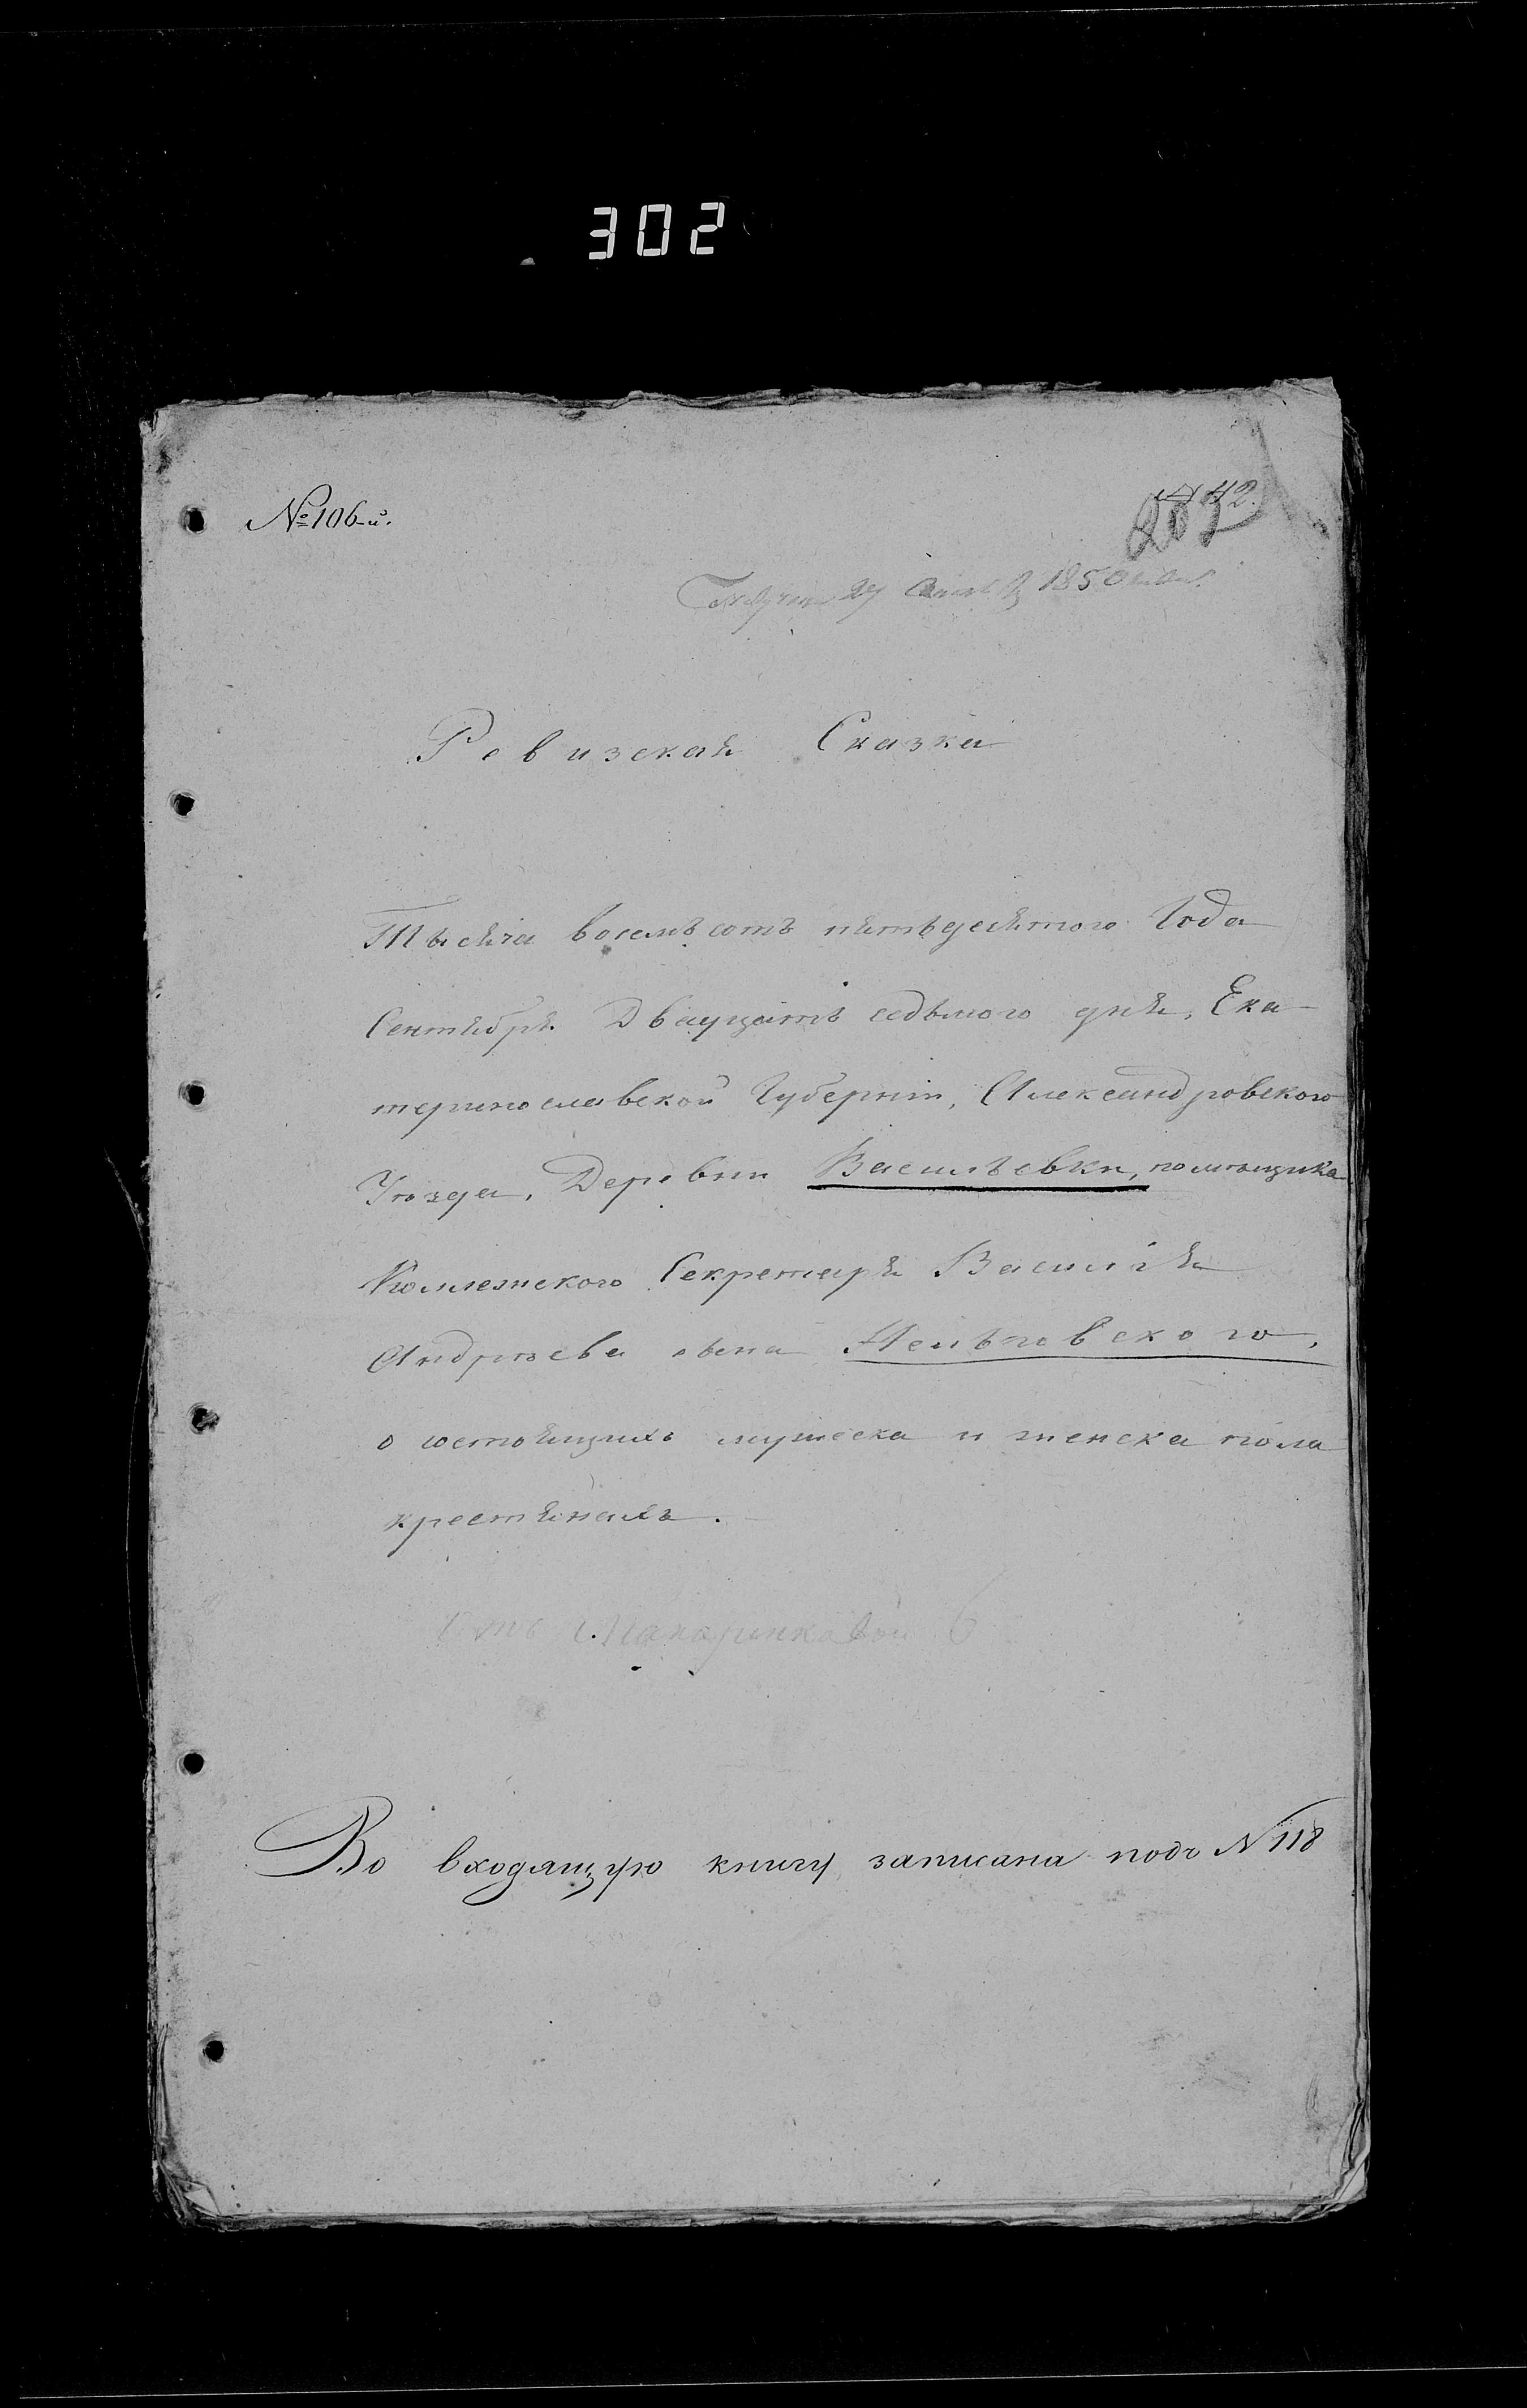 302
№ 106-й.
1850
Ревизская Сказка
Тысяча восемьсотъ пятьдесятого Года
Сентября Двадцать седьмого дня, Ека-
теринославской Губерніи, Александровского
Уѣзда, Деревни Васильевки, помѣщика
Коллежского Секретаря Василія
Андрѣева сына
о состоящихъ мужеска и женска пола
крестьянахъ.
Во входящую книгу записана подъ N 118